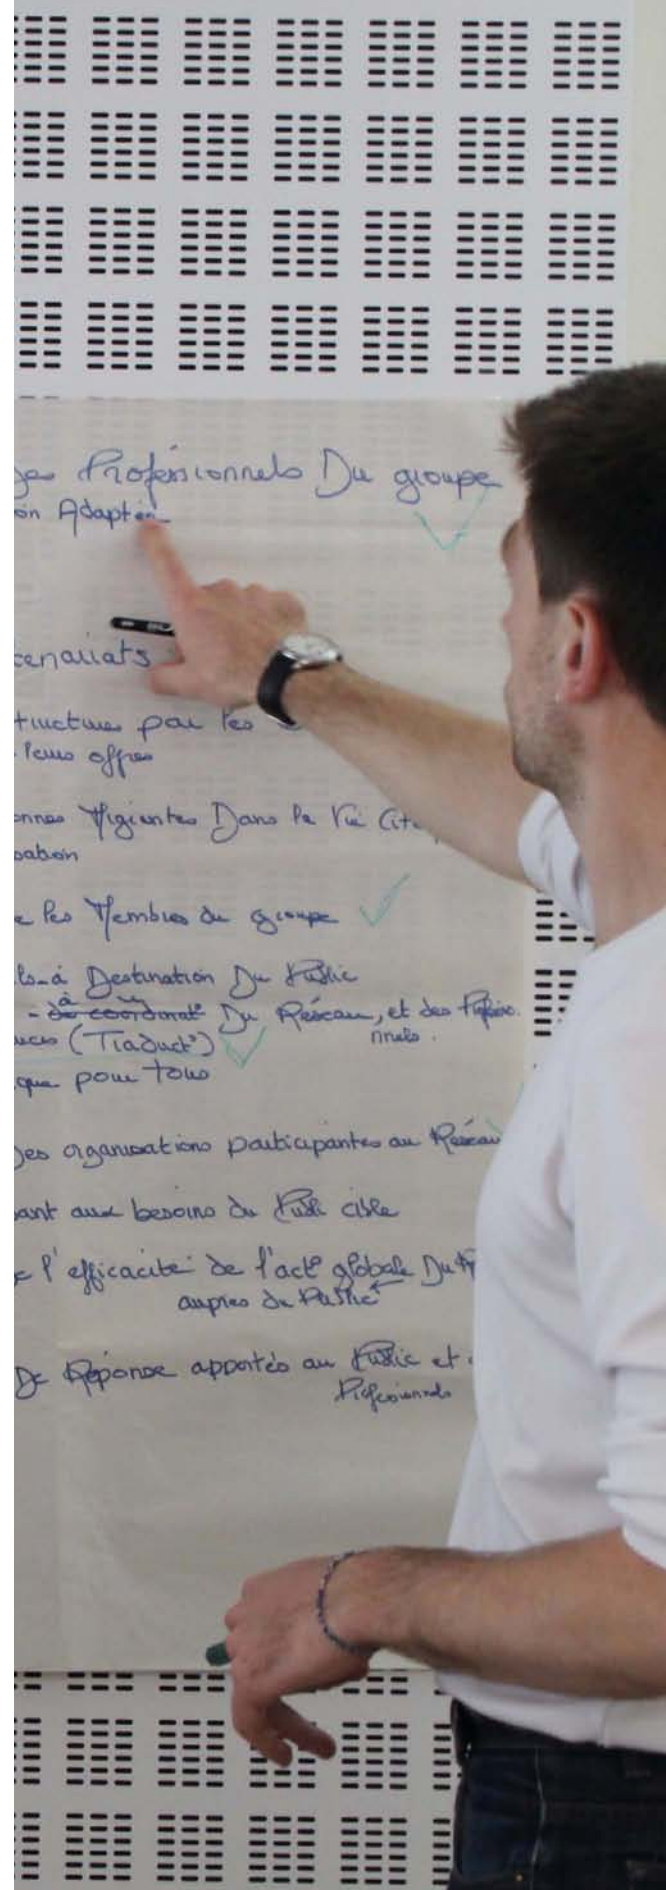 des Professionnels Du groupe
on Adaptée
tenariats
tructures par les
leurs offres
onnes Migrantes Dans la Vie Cito
sation
e les Membres du groupe
ls à Destination Du Public
- de coordinat° Du Réseau, et des Profession
nnels.
nces (Traduct°)
que pour tous
Des organisations participantes au Réseau
ant aux besoins du Public cible
l'efficacité de l'act° globale Du
auprès du Public
De Réponse apportés au Public et
Professionnels